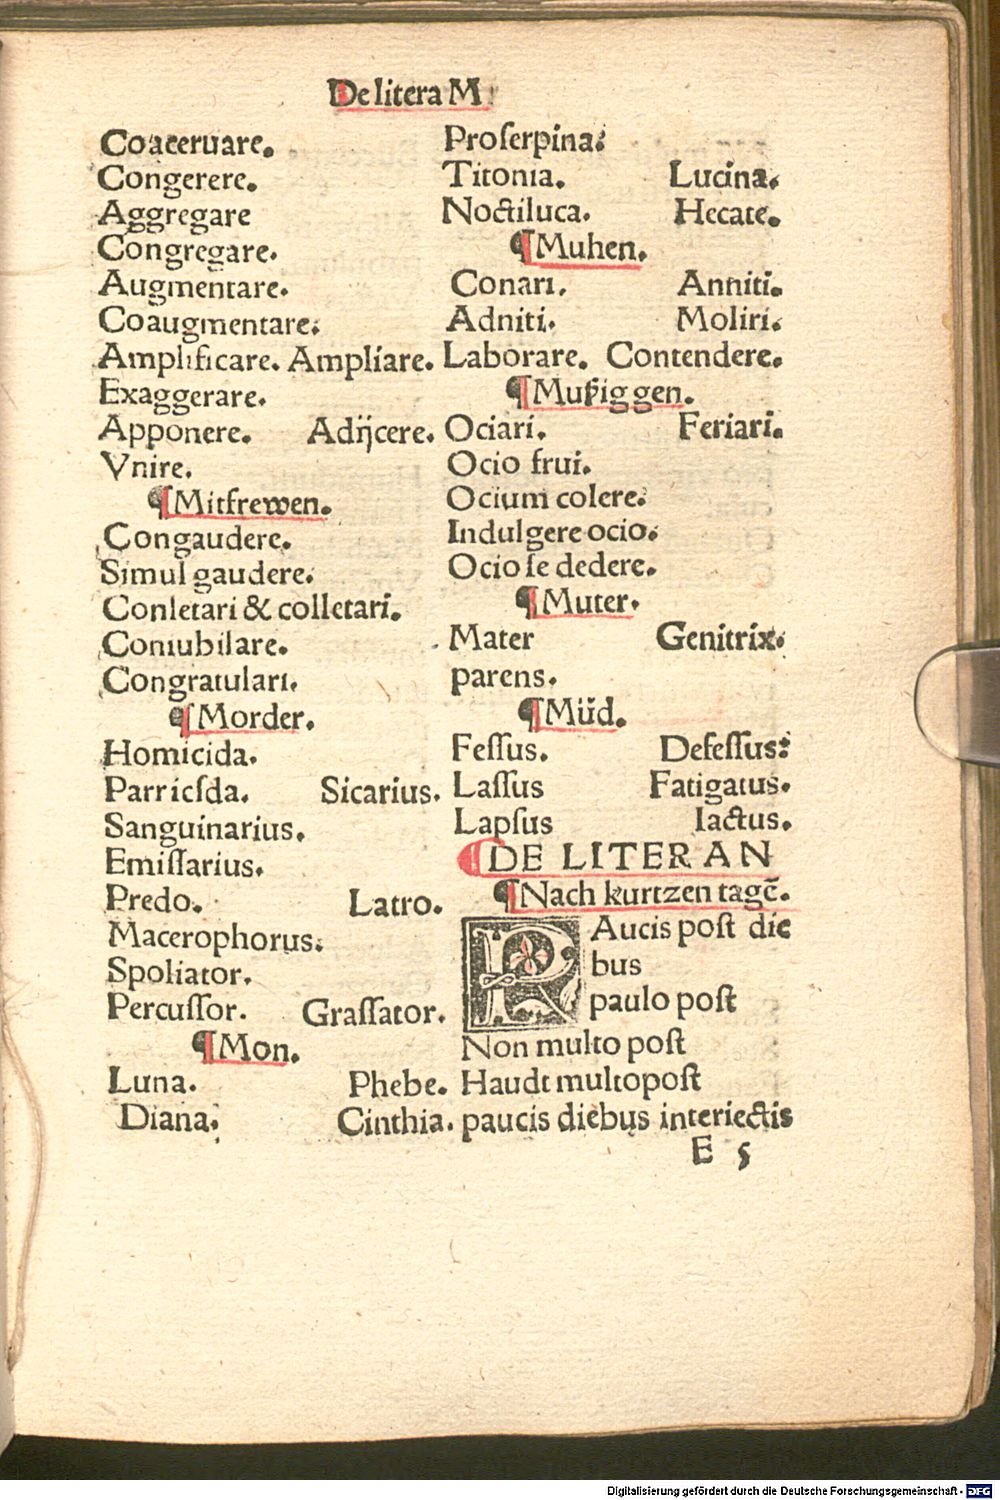 De litera M
Coaceruare.
Congerere.
Aggregare
Congregare.
Augmentare.
Coaugmentare.
Amplificare. Ampliare.
Exaggerare.
Apponere. Adijcere.
Vnire.
¶Mitfrewen.
Congaudere.
Simul gaudere.
Conletari & colletari.
Coniubilare.
Congratulari.
¶Morder.
Homicida.
Parricsda. Sicarius.
Sanguinarius.
Emiſſarius.
Predo. Latro.
Macerophorus.
Spoliator.
Percuſſor. Graſſator.
¶Mon.
Luna. Phebe.
Diana. Cinthia.
Proſerpina.
Titonia. Lucina.
Noctiluca. Hecate.
¶Muhen.
Conari. Anniti.
Adniti. Moliri.
Laborare. Contendere.
¶Muſſig gen.
Ociari. Feriari.
Ocio frui.
Ocium colere.
Indulgere ocio.
Ocio ſe dedere.
¶Muter.
Mater Genitrix.
parens.
¶Muͤd.
Feſſus. Defeſſus:
Laſſus Fatigatus.
Lapſus Iactus.
¶DE LITERA N
¶Nach kurtzen tagē.
PAucis poſt die
bus
paulo poſt
Non multo poſt
Haudt multopoſt
paucis diebus interiectis
E 5
Digitalisierung gefördert durch die Deutsche Forschungsgemeinschaft - DFG